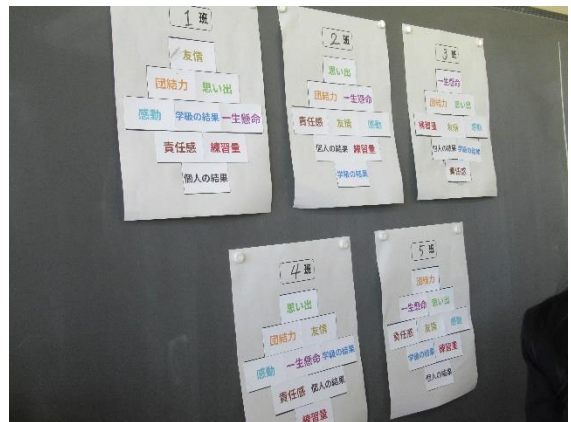 1 班
友情
団結力 思い出
感動 学級の結果 一生懸命
責任感 練習量
個人の結果
2 班
思い出
団結力 一生懸命
責任感 友情 感動
個人の結果 練習量
学級の結果
3 班
一生懸命
団結力 思い出
練習量 友情 感動
個人の結果 学級の結果
責任感
4 班
思い出
団結力 友情
感動 一生懸命 学級の結果
責任感 個人の結果
練習量
5 班
団結力
一生懸命 思い出
責任感 友情 感動
学級の結果 練習量
個人の結果